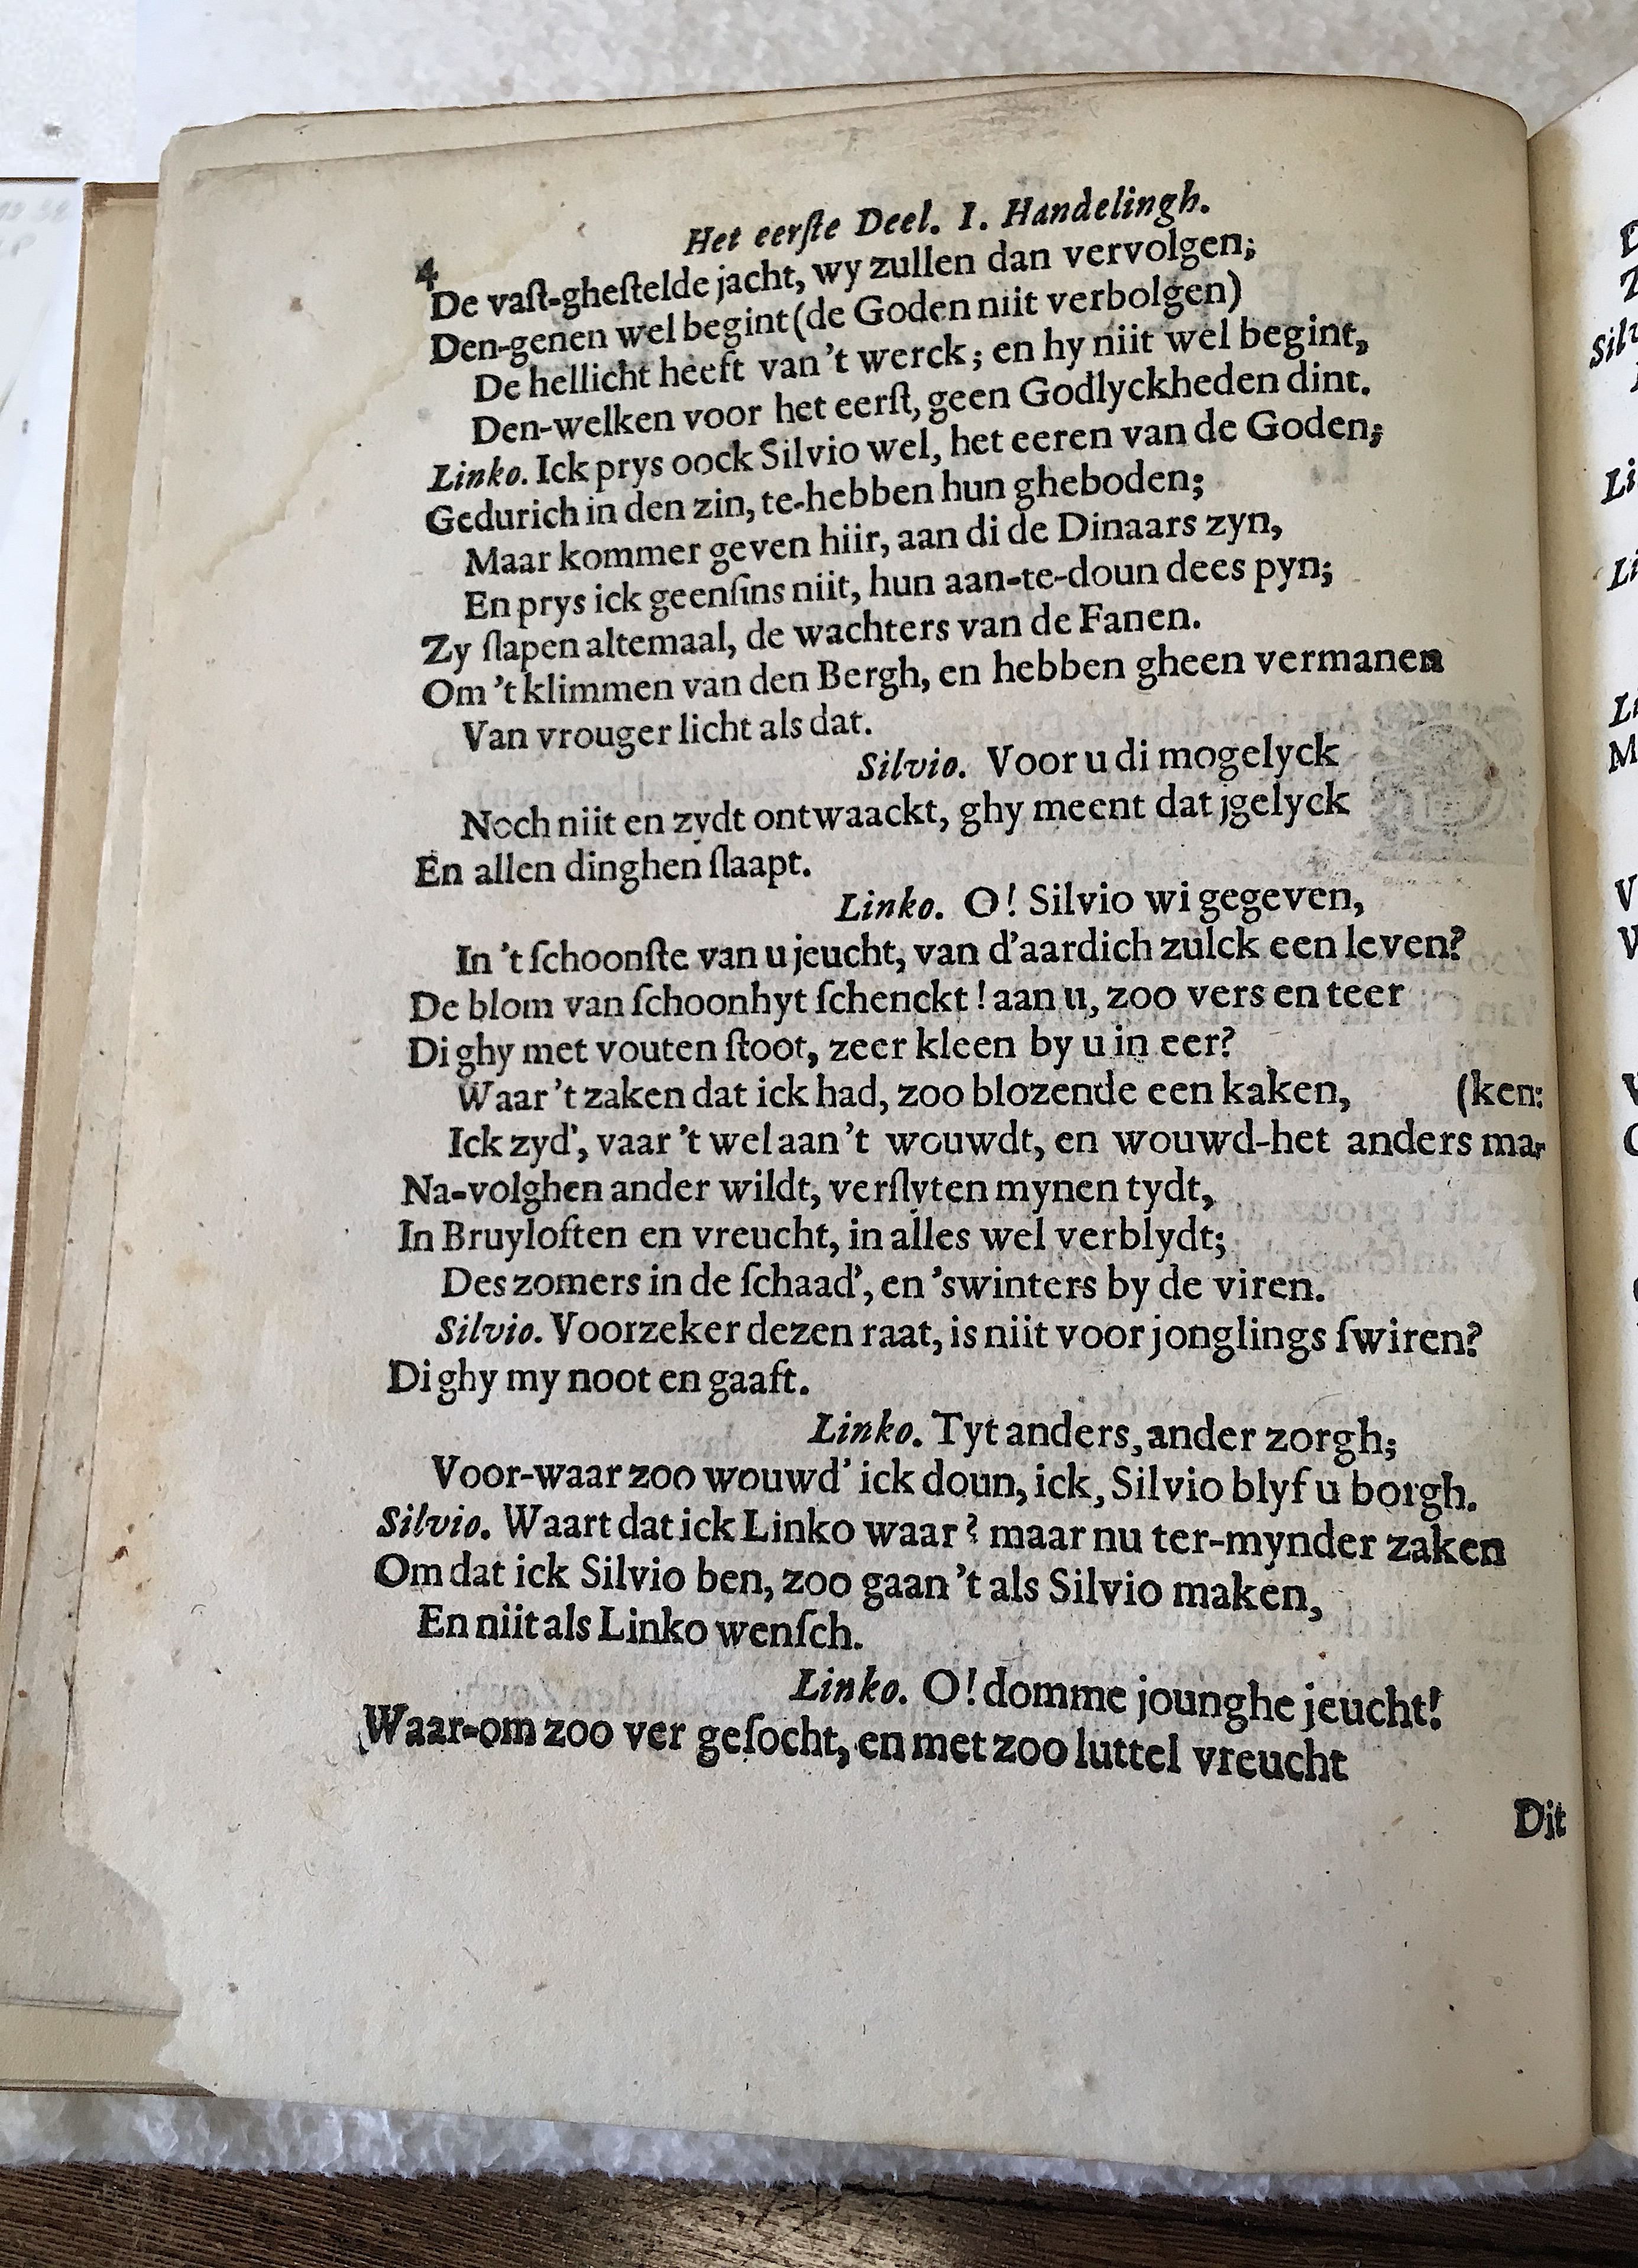 Het eerſte Deel. I. Handelingh.
4
De vaſt-gheſtelde jacht, wy zullen dan vervolgen;
Den-genen wel begint (de Goden niit verbolgen)
De hellicht heeft van 't werck; en hy niit wel begint,
Den-welken voor het eerſt, geen Godlyckheden dint.
Linko. Ick prys oock Silvio wel, het eeren van de Goden;
Gedurich in den zin, te-hebben hun gheboden;
Maar kommer geven hiir, aan di de Dinaars zyn,
En prys ick geenſins niit, hun aan-te-doun dees pyn;
Zy ſlapen altemaal, de wachters van de Fanen.
Om 't klimmen van den Bergh, en hebben gheen vermanen
Van vrouger licht als dat.
Silvio. Voor u di mogelyck
Noch niit en zydt ontwaackt, ghy meent dat jgelyck
En allen dinghen ſlaapt.
Linko. O! Silvio wi gegeven,
In 't ſchoonſte van u jeucht, van d'aardich zulck een leven?
De blom van ſchoonhyt ſchenckt! aan u, zoo vers en teer
Di ghy met vouten ſtoot, zeer kleen by u in eer?
Waar 't zaken dat ick had, zoo blozende een kaken, (ken:
Ick zyd', vaar 't wel aan 't wouwdt, en wouwd-het anders ma-
Na-volghen ander wildt, verſlyten mynen tydt,
In Bruyloften en vreucht, in alles wel verblydt;
Des zomers in de ſchaad', en 'swinters by de viren.
Silvio. Voorzeker dezen raat, is niit voor jonglings ſwiren?
Di ghy my noot en gaaft.
Linko. Tyt anders, ander zorgh;
Voor-waar zoo wouwd' ick doun, ick, Silvio blyf u borgh.
Silvio. Waart dat ick Linko waar? maar nu ter-mynder zaken
Om dat ick Silvio ben, zoo gaan 't als Silvio maken,
En niit als Linko wenſch.
Linko. O! domme jounghe jeucht!
Waar-om zoo ver geſocht, en met zoo luttel vreucht
Dit